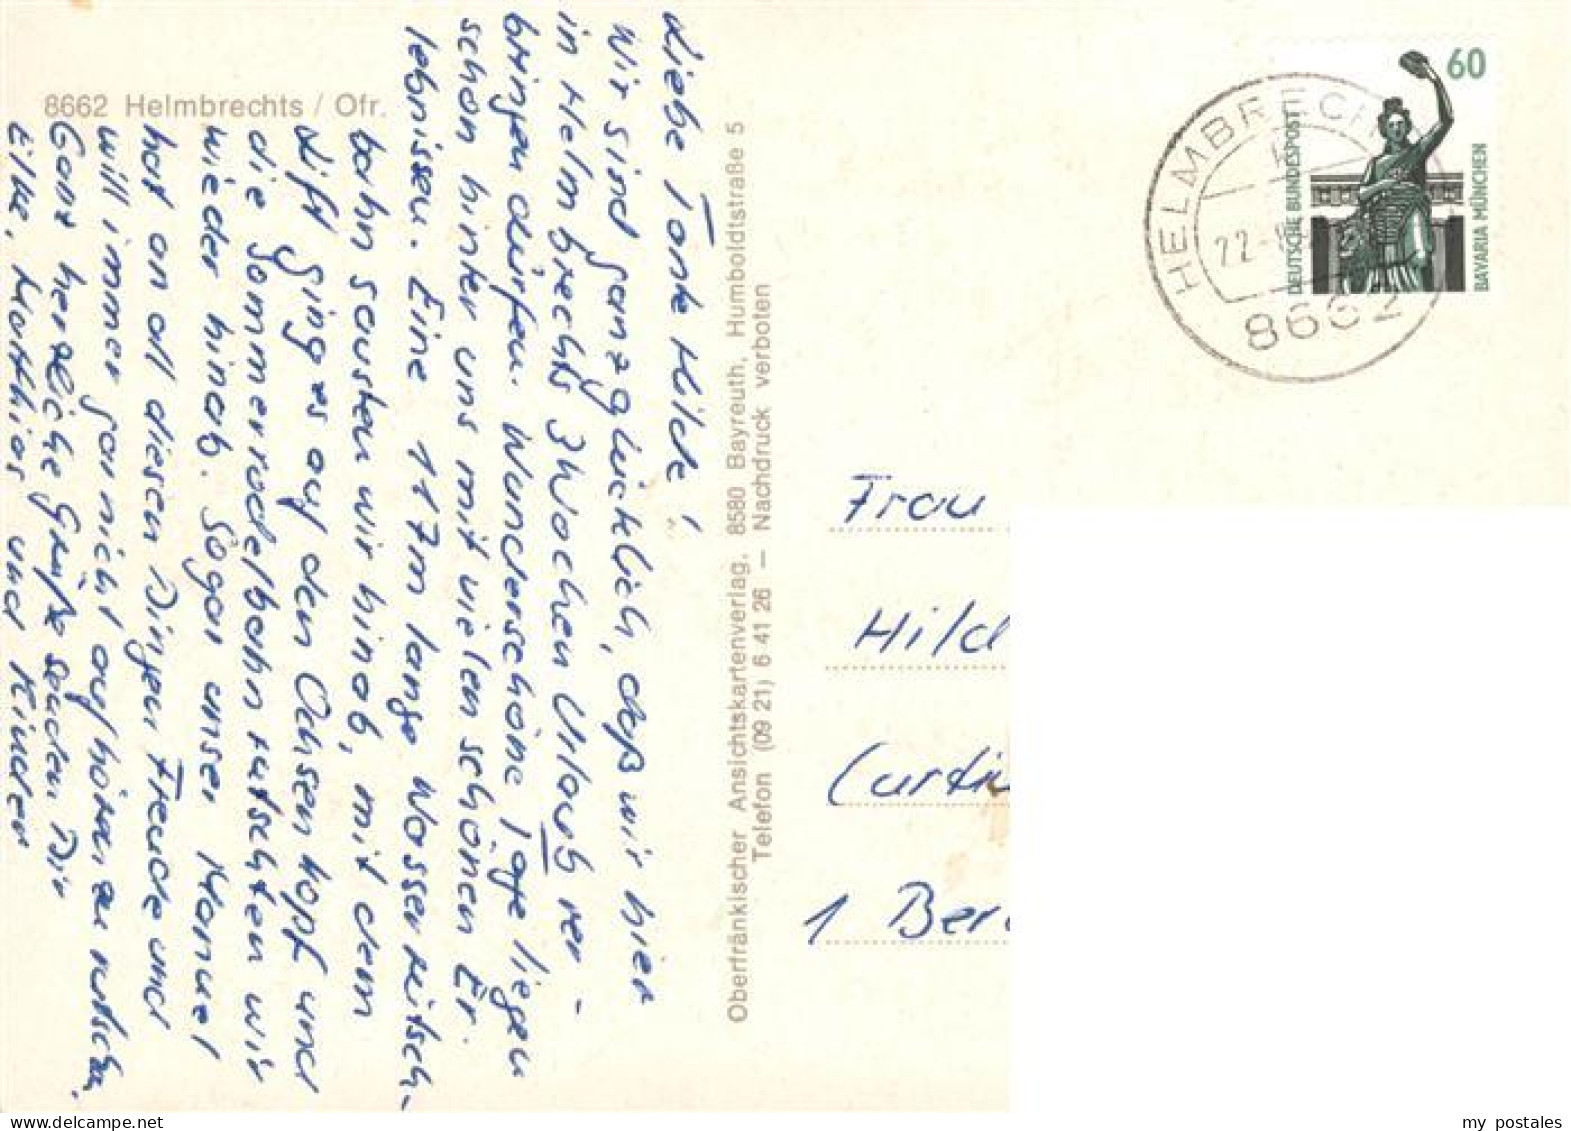 8662 Helmbrechts / Ofr.
Liebe Tante Hilde!
Wir sind ganz glücklich, daß wir hier
in Helmbrechts 3 Wochen Urlaub ver-
bringen dürfen. Wunderschöne Tage liegen
schon hinter uns mit vielen schönen Er-
lebnissen. Eine 117m lange Wasserrutsch-
bahn sausten wir hinab, mit dem
Lift ging es auf den Ochsenkopf und
die Sommerrodelbahn rutschten wir
wieder hinab. Sogar unser Manuel
hat an all diesen Dingen Freude und
will immer gar nicht aufhören zu rutschen.
Ganz herzliche Grüße senden Dir
Elke, Matthias und Kinder
Oberfränkischer Ansichtskartenverlag, 8580 Bayreuth, Humboldtstraße 5
Telefon (09 21) 6 41 26 — Nachdruck verboten
HELMBRECH
22
8662
60
DEUTSCHE BUNDESPOST
BAVARIA MÜNCHEN
Frau
Hild
Curtiu
1 Ber
my postales